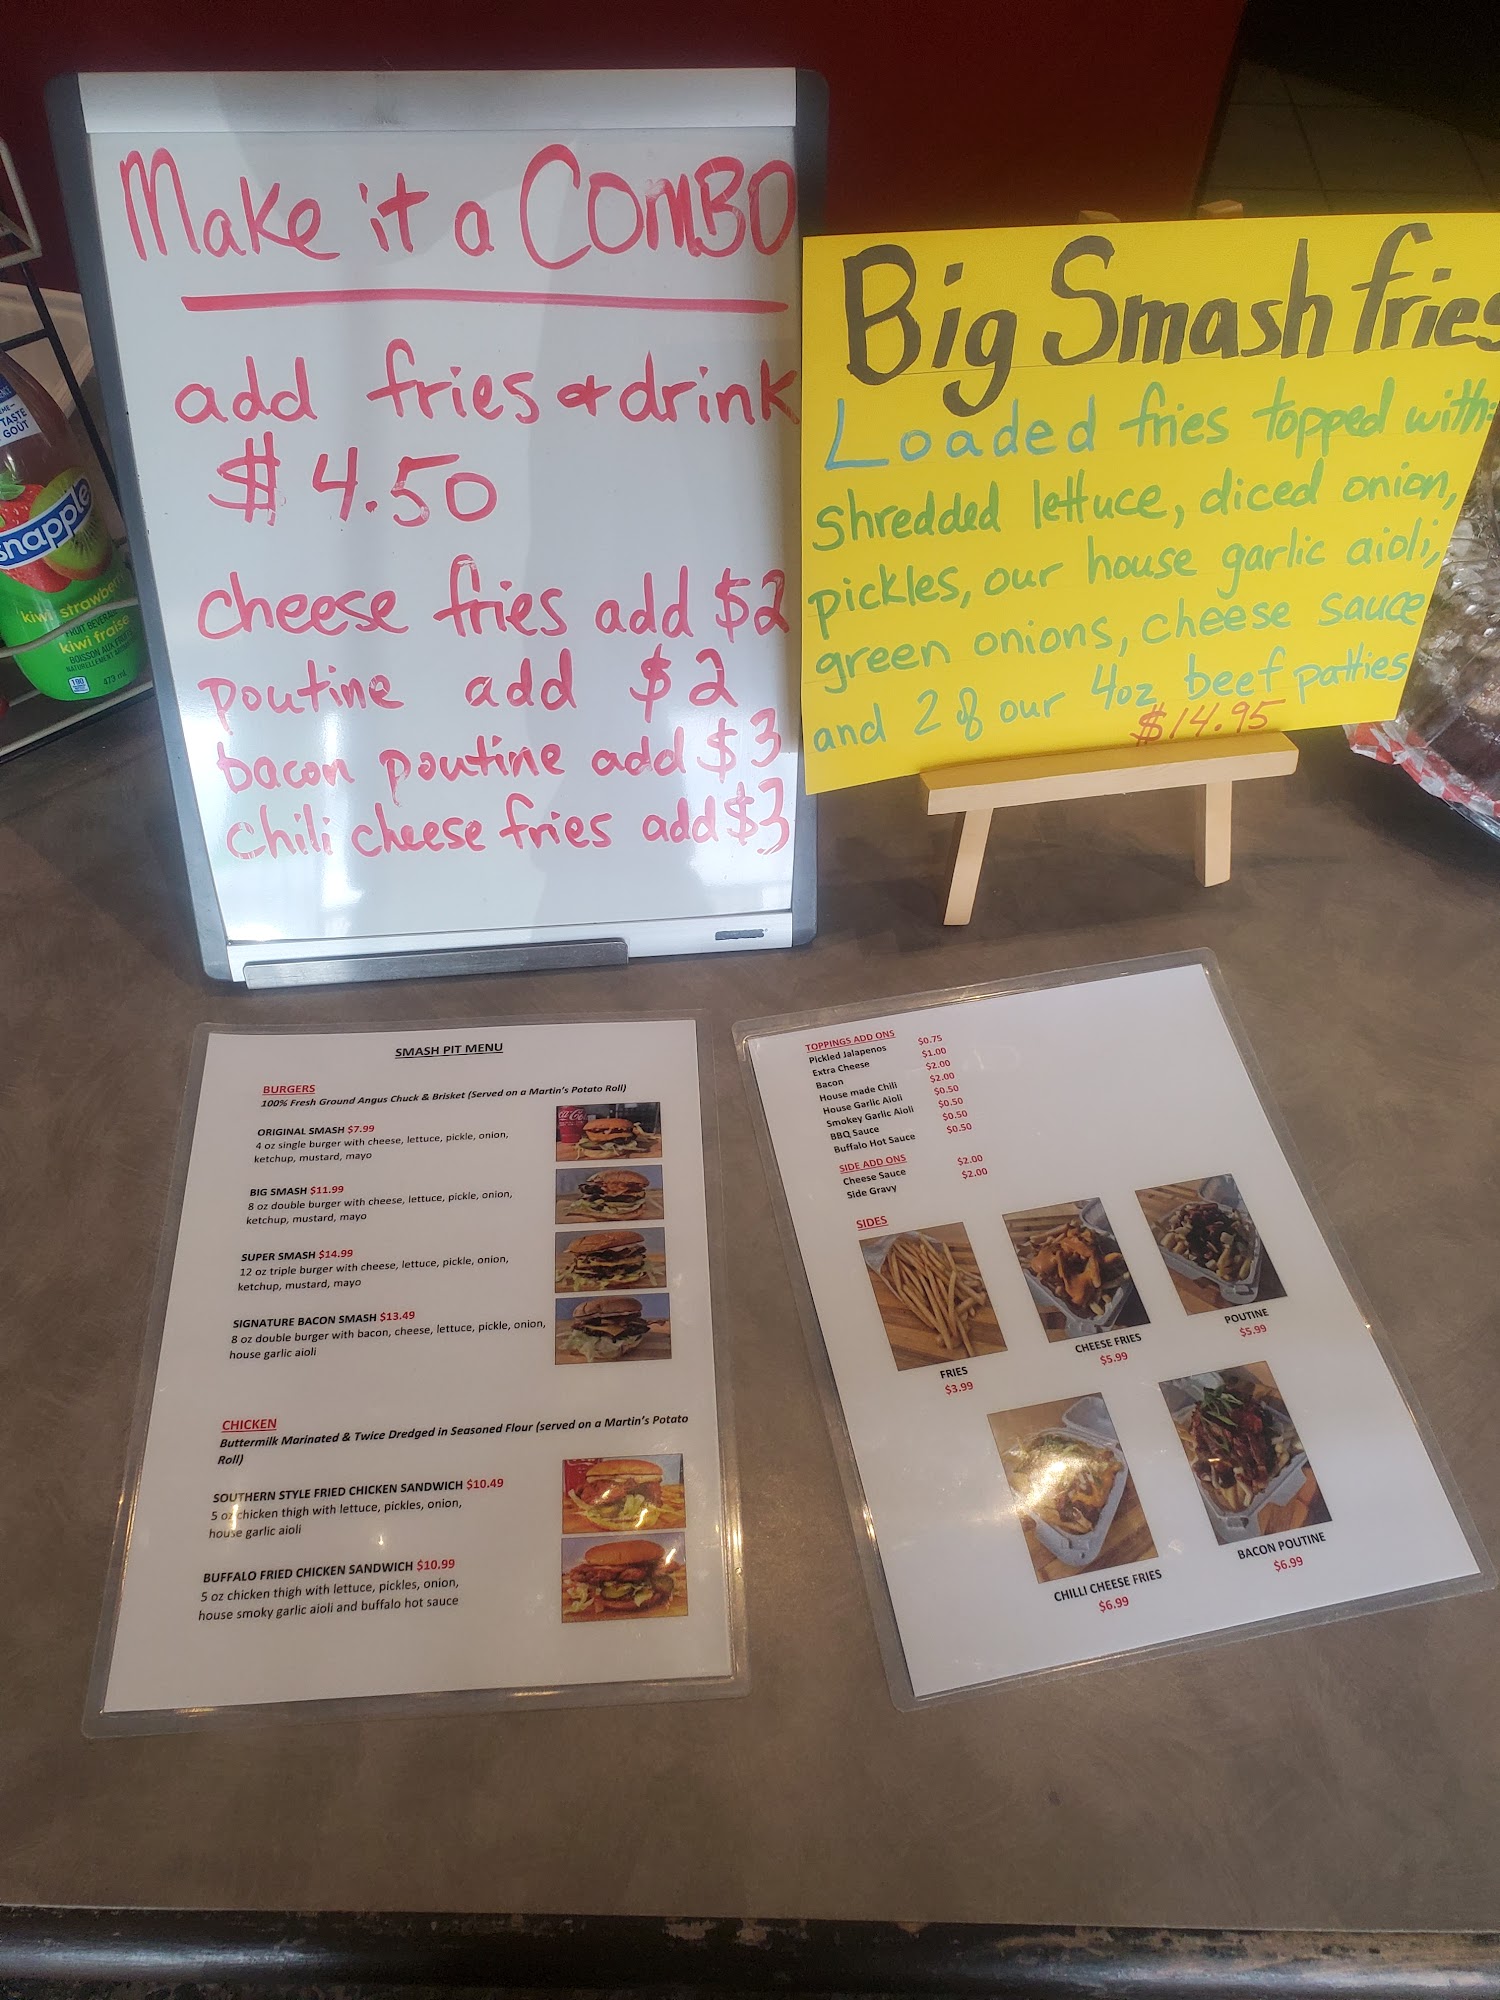 Make it a COMBO
add fries & drink
$4.50
cheese fries add $2
poutine add $2
bacon poutine add $3
chili cheese fries add $3
Big Smash fries
Loaded fries topped with:
shredded lettuce, diced onion,
pickles, our house garlic aioli,
green onions, cheese sauce
and 2 of our 4oz beef patties
$14.95
TASTE
GOÛT
snapple
kiwi strawberry
FRUIT BEVERAGE
kiwi fraise
473 mL
SMASH PIT MENU
BURGERS
100% Fresh Ground Angus Chuck & Brisket (Served on a Martin's Potato Roll)
ORIGINAL SMASH $7.99
4 oz single burger with cheese, lettuce, pickle, onion,
ketchup, mustard, mayo
BIG SMASH $11.99
8 oz double burger with cheese, lettuce, pickle, onion,
ketchup, mustard, mayo
SUPER SMASH $14.99
12 oz triple burger with cheese, lettuce, pickle, onion,
ketchup, mustard, mayo
SIGNATURE BACON SMASH $13.49
8 oz double burger with bacon, cheese, lettuce, pickle, onion,
house garlic aioli
CHICKEN
Buttermilk Marinated & Twice Dredged in Seasoned Flour (served on a Martin's Potato
Roll)
SOUTHERN STYLE FRIED CHICKEN SANDWICH $10.49
5 oz chicken thigh with lettuce, pickles, onion,
house garlic aioli
BUFFALO FRIED CHICKEN SANDWICH $10.99
5 oz chicken thigh with lettuce, pickles, onion,
house smoky garlic aioli and buffalo hot sauce
TOPPINGS ADD ONS
Pickled Jalapenos $0.75
Extra Cheese $1.00
Bacon $2.00
House made Chili $2.00
House Garlic Aioli $0.50
Smokey Garlic Aioli $0.50
BBQ Sauce $0.50
Buffalo Hot Sauce $0.50
SIDE ADD ONS
Cheese Sauce $2.00
Side Gravy $2.00
SIDES
FRIES
$3.99
CHEESE FRIES
$5.99
POUTINE
$5.99
CHILLI CHEESE FRIES
$6.99
BACON POUTINE
$6.99